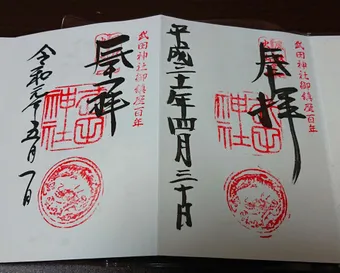 武田神社御鎮座百年
奉拝
武田神社
平成三十一年四月三十日
武田神社御鎮座百年
奉拝
武田神社
令和元年五月一日